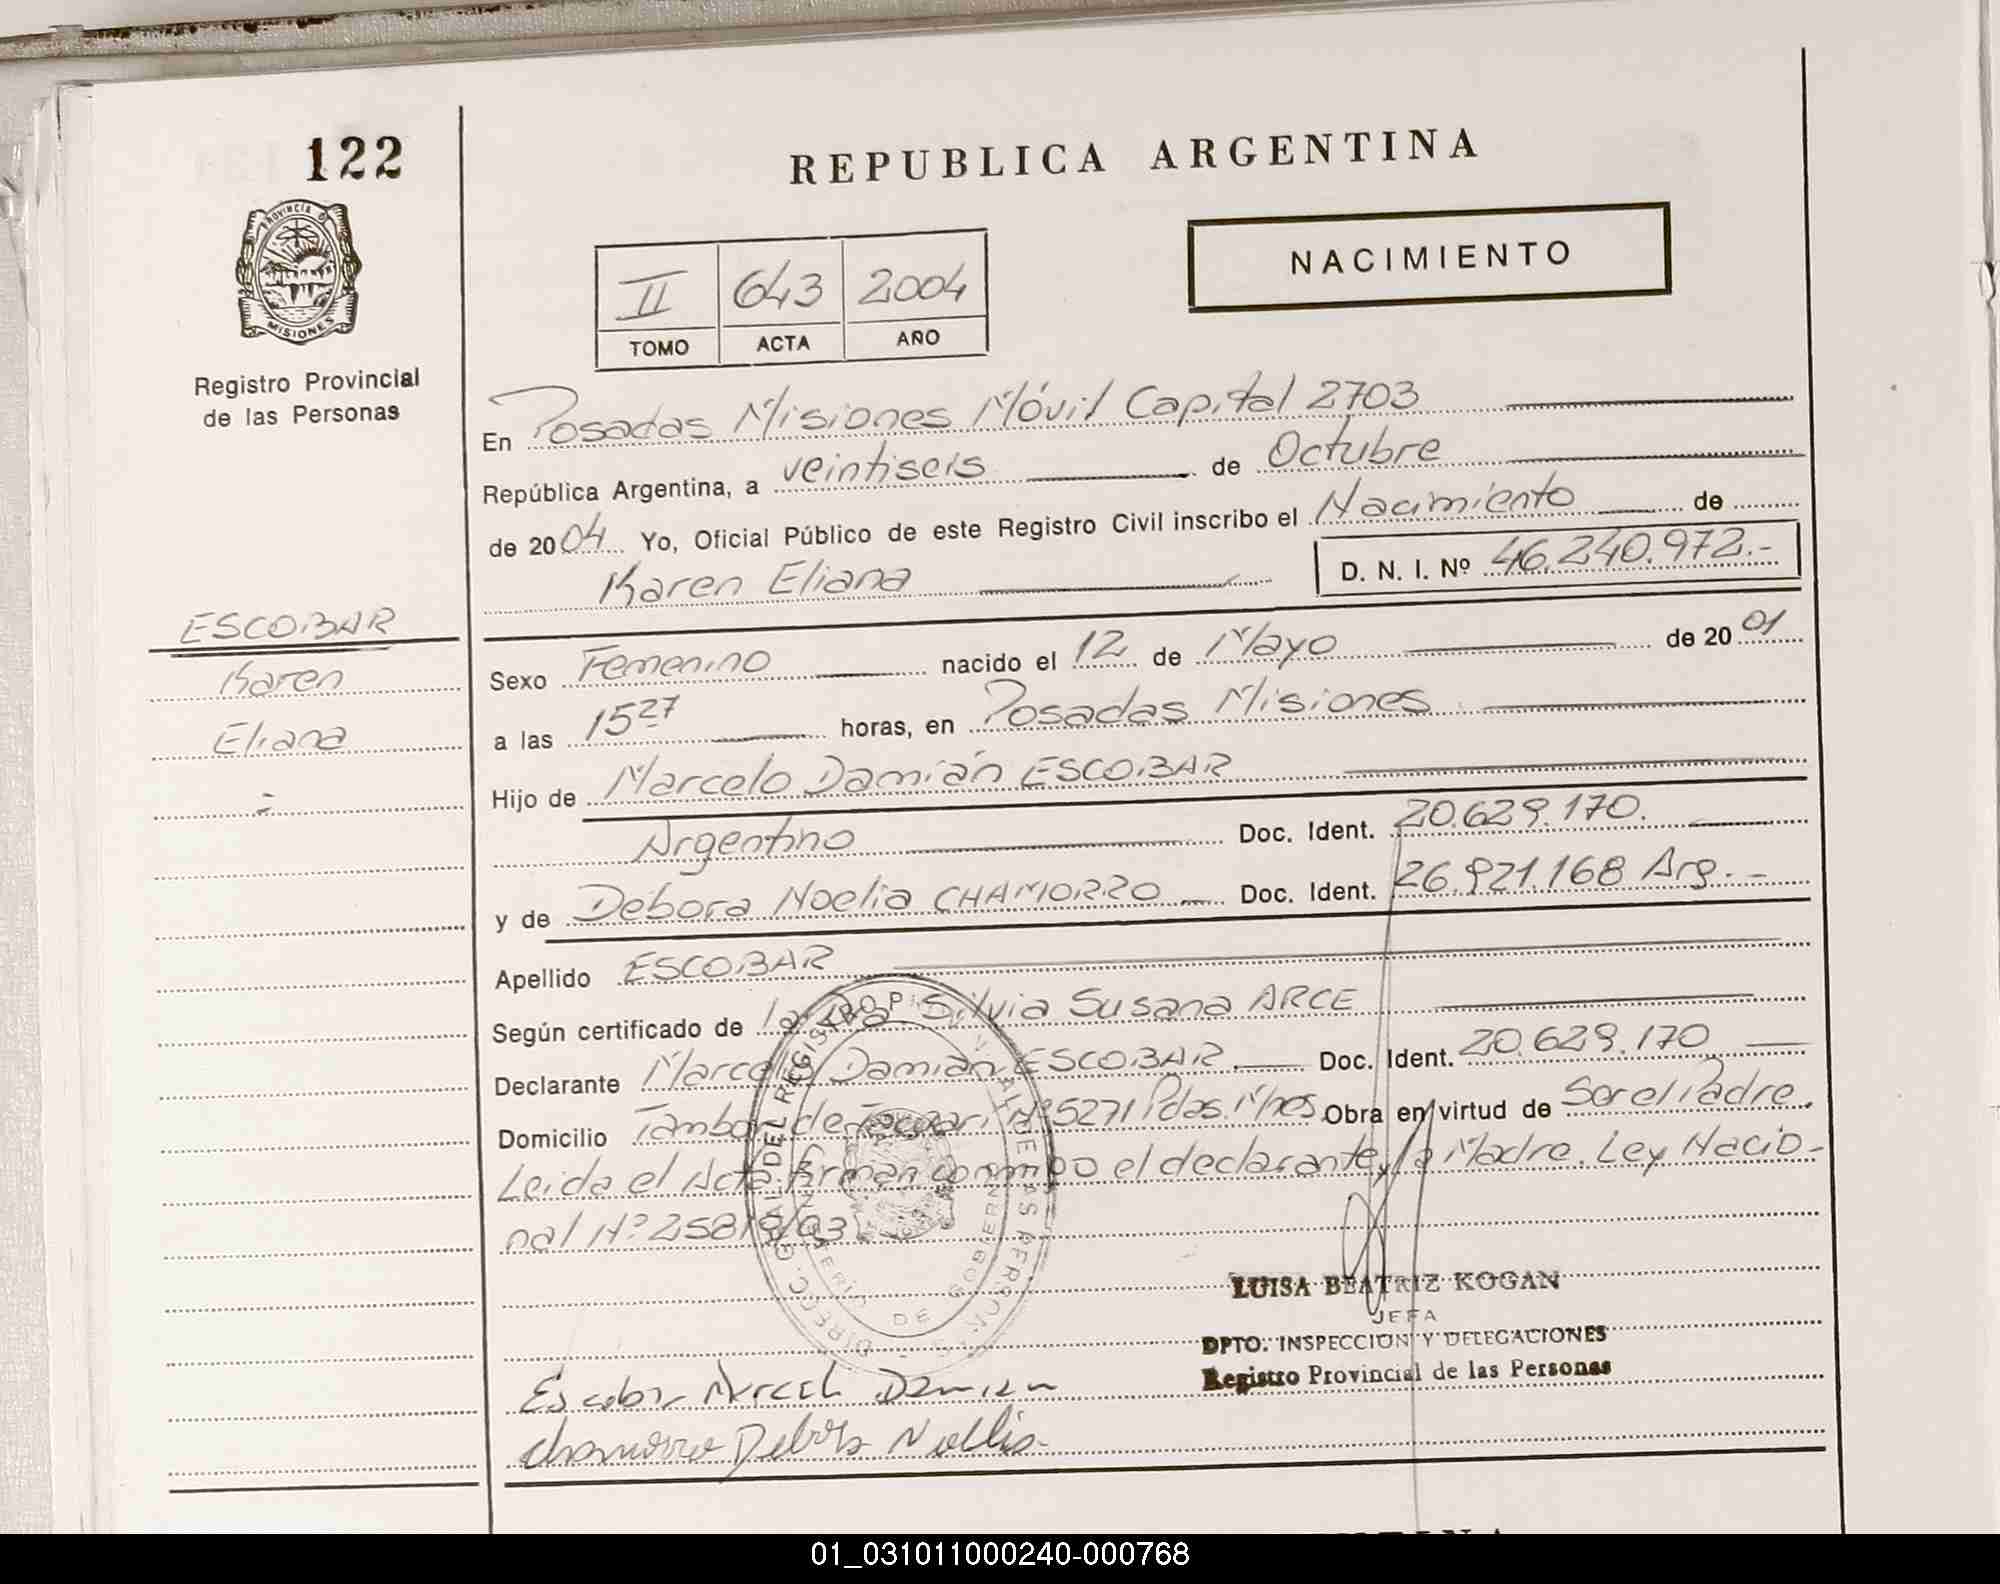 122
PROVINCIA DE
MISIONES
Registro Provincial
de las Personas
REPUBLICA ARGENTINA
NACIMIENTO
II 643 2004
TOMO ACTA AÑO
En Posadas Misiones Móvil Capital 2703
República Argentina, a veintiseis de Octubre
de 2004 Yo, Oficial Público de este Registro Civil inscribo el Nacimiento de
Karen Eliana D. N. I. Nº 46.240.972.-
ESCOBAR
Karen
Eliana
Sexo Femenino nacido el 12 de Mayo de 2001
a las 15 27 horas, en Posadas Misiones
Hijo de Marcelo Damián ESCOBAR
Argentino Doc. Ident. 20.629.170.
y de Débora Noelia CHAMORRO Doc. Ident. 26.921.168 Arg.-
Apellido ESCOBAR
Según certificado de la Silvia Susana ARCE
Declarante Marcelo Damián ESCOBAR Doc. Ident. 20.629.170
Domicilio Tambor de Tacuari Nº 5271 Pdas. Mnes Obra en virtud de Ser el Padre.
Leida el Acta firman conmigo el declarante y la Madre. Ley Nacio-
nal Nº 25819/03
DIRECC. GRAL DEL REGISTRO PROVINCIAL DE LAS PERSONAS
MINISTERIO DE GOBIERNO
LUISA BEATRIZ KOGAN
JEFA
DPTO. INSPECCION Y DELEGACIONES
Registro Provincial de las Personas
Escobar Marcelo Damian
Chamorro Debora Noelia
01_031011000240-000768